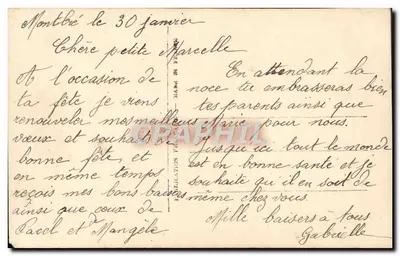 Montbré le 30 janvier
Chère petite Marcelle
A l'occasion de
ta fête je viens
renouveler mes meilleurs
vœux et souhaits de
bonne fête et
en même temps
reçois mes bons baisers
ainsi que ceux de
Paool et de Mangèle
En attendant la
noce tu embrasseras bien
tes parents ainsi que
Marie pour nous.
Jusqu'ici tout le monde
est en bonne santé et je
souhaite qu'il en soit de
même chez vous.
Mille baisers à tous
Gabrielle
CPARAMA